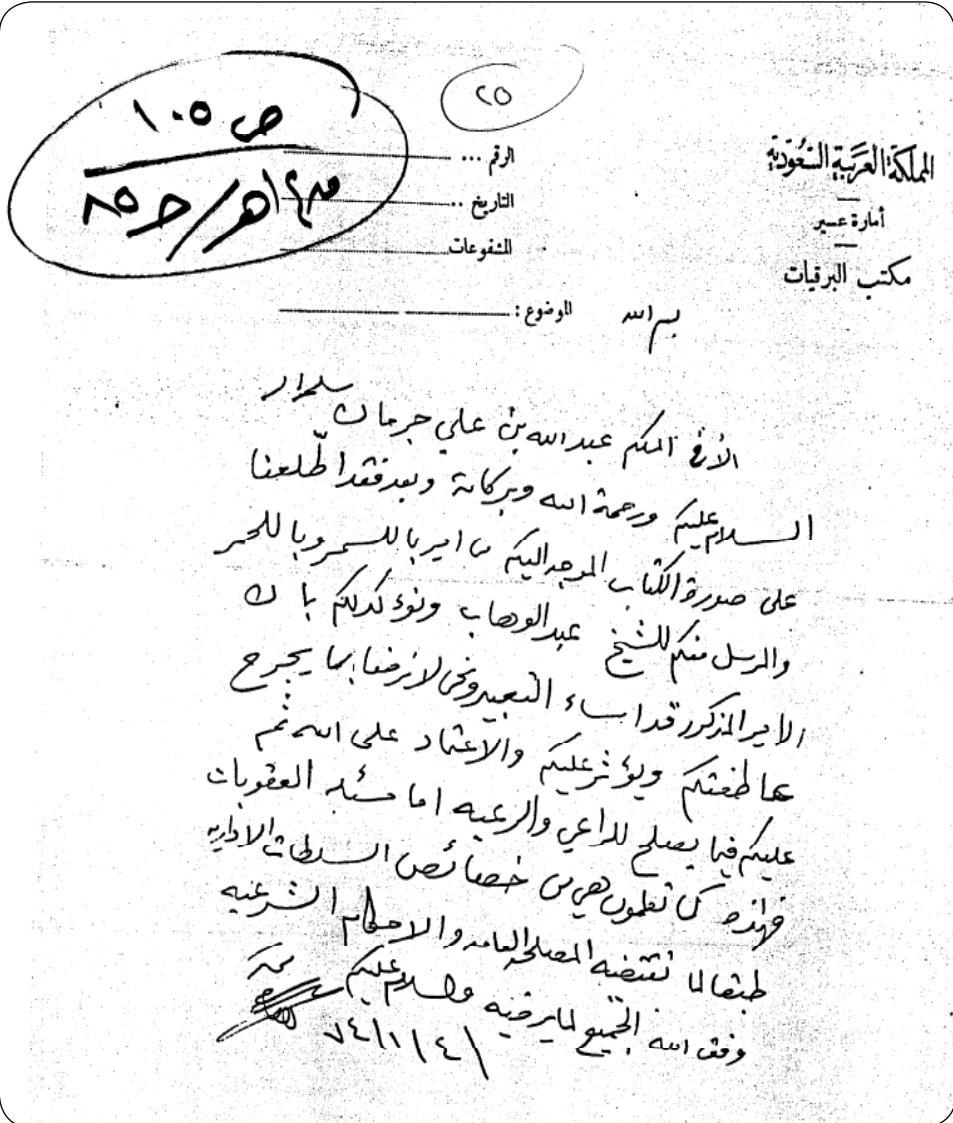 ٢٥
ص ١٠٥
٨٥
المملكة العربية السعودية
أمارة عسير
مكتب البرقيات
الرقم ...
التاريخ ..
المشفوعات
الموضوع :
بسم الله
الأخ المكرم عبدالله بن علي جرمان
السلام عليكم ورحمة الله وبركاته وبعد فقد اطّلعنا
على صورة الكتاب الموجه اليكم من امير باللسمر وباللحمر
والمرسل منكم للشيخ عبدالوهاب ونؤكد لكم بان
الامير المذكور قد اساء التعبير ونحن لا نرضا بما يجرح
عاطفتكم ويؤثر عليكم والاعتماد على الله ثم
عليكم فيما يصلح للراعي والرعيه اما مسئلة العقوبات
فهاذه كما تعلمون هي من خصائص السلطات الاداريه
طبقا لما تقتضيه المصلحة العامه والاحكام الشرعيه
وفق الله الجميع لما يرضيه والسلام عليكم